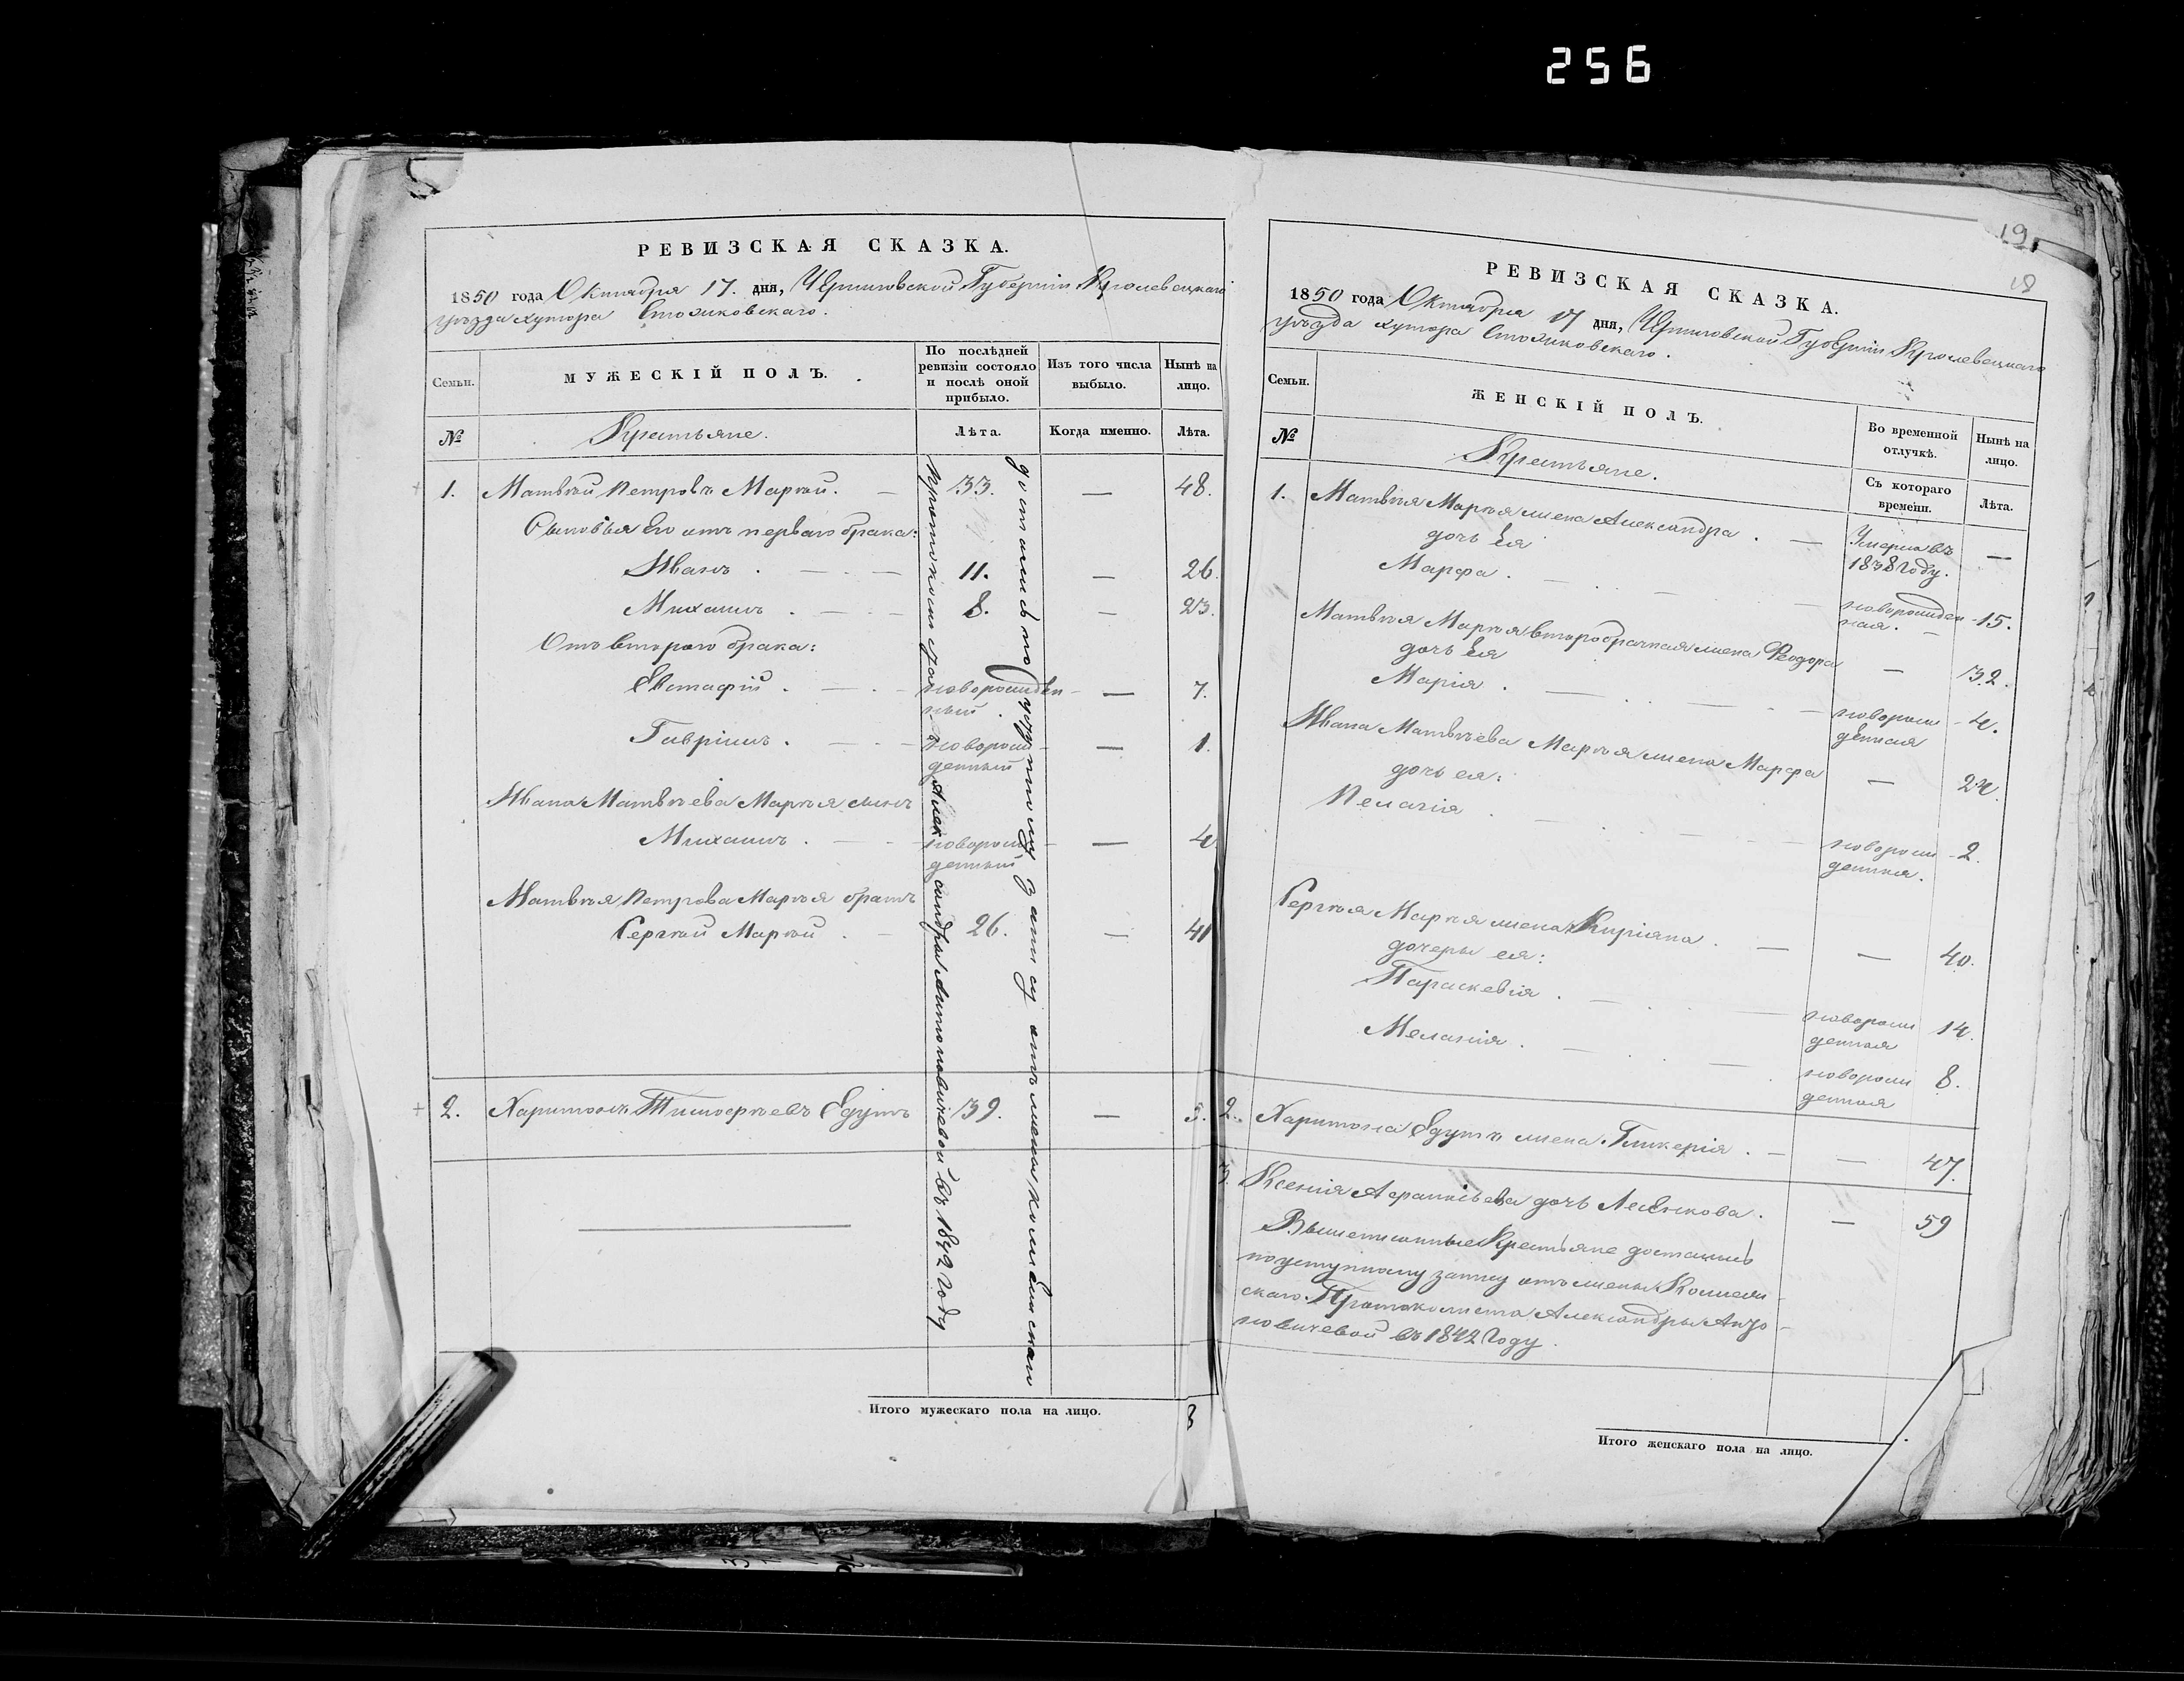 256
РЕВИЗСКАЯ СКАЗКА.
1850 года Октября 17. дня, Черниговской Губерніи Кролевецкаго
уѣзда хутора
Семьи.
МУЖЕСКІЙ ПОЛЪ.
По послѣдней ревизіи состояло и послѣ оной прибыло.
Изъ того числа выбыло.
Нынѣ на лицо.
№
Крестьяне.
Лѣта.
Когда именно.
Лѣта.
1. Матвѣй Петровъ Маркѣй. — 33. — 48.
Сыновья Его отъ перваго брака:
Иванъ . — 11. — 26.
Михаилъ . — 8. — 23.
Отъ втораго брака:
Евстафій . — новорожден- — 7.
ный.
Гавріилъ . — новорож- — 1.
денный
Ивана Матвѣева Маркѣя сынъ
Михаилъ . — новорож- — 4
денный
Матвѣя Петрова Маркѣя братъ
Сергѣй Маркѣй . — 26. — 41
2. Харитонъ Тимофѣевъ Едутъ 39. — 5.
достались по уступному запису отъ жены коллежскаго
протоколиста Александры Антоновичевой въ 1842 году
Итого мужескаго пола на лицо.
8
19
18
РЕВИЗСКАЯ СКАЗКА.
1850 года Октября 17 дня, Черниговской Губерніи Кролевецкаго
уѣзда хутора
Семьи.
ЖЕНСКІЙ ПОЛЪ.
Во временной отлучкѣ.
Нынѣ на лицо.
№
Крестьяне.
Съ котораго времени.
Лѣта.
1. Матвѣя Маркѣя жена Александра . — Умерла въ —
1838 Году.
дочь Ея
Марфа . — новорожден- 15.
ная.
Матвѣя Маркѣя второбрачная жена Феодора — 32.
дочь Ея
Марія . — новорож- 4.
денная
Ивана Матвѣева Маркѣя жена Марфа — 24.
дочь ея:
Пелагія . — новорож- 2.
денная.
Сергѣя Маркѣя жена Киріяна . — — 40.
дочери ея:
Параскевія . — новорож 14.
денная
Меланія . — новорож 8.
денная
2. Харитона Едутъ жена Гликерія . — — 47.
3. Ксенія дочь . — 59
Вышеписанные Крестьяне достались
по уступному запису отъ жены Коллеж-
скаго Протоколиста Александры Анто-
новичевой въ 1842 Году.
Итого женскаго пола на лицо.